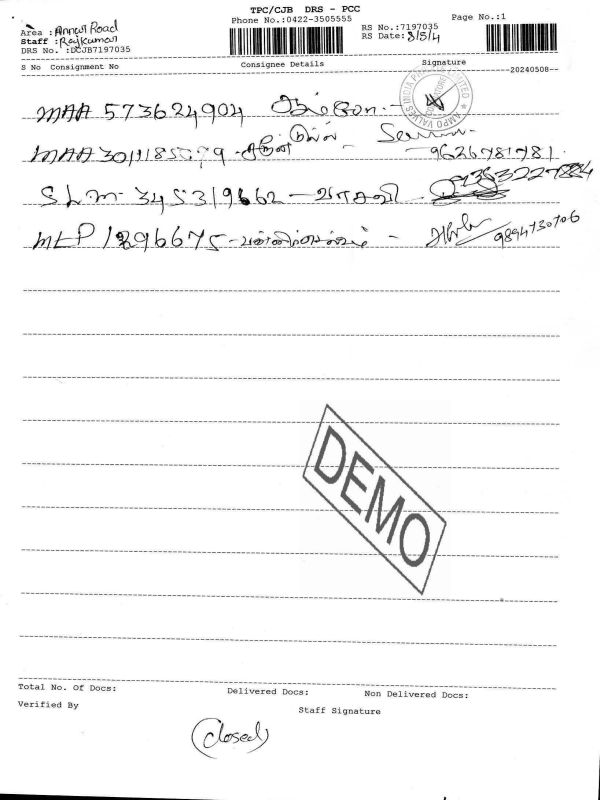 TPC/CJB DRS - PCC
Phone No.:0422-3505555
Page No.:1
Area : Annur Road
RS No.:7197035
Staff : Rajkumar
RS Date: 8/5/4
DRS No. :DCJB7197035
S No Consignment No Consignee Details Signature
20240508
AMPO VALVES INDIA PRIVATE LIMITED
MAA 573624904
MAA 9626781781
SLM 345319662 - வாசவி
MLP 1296675 - 9894730706
DEMO
Total No. Of Docs: Delivered Docs: Non Delivered Docs:
Verified By Staff Signature
(closed)